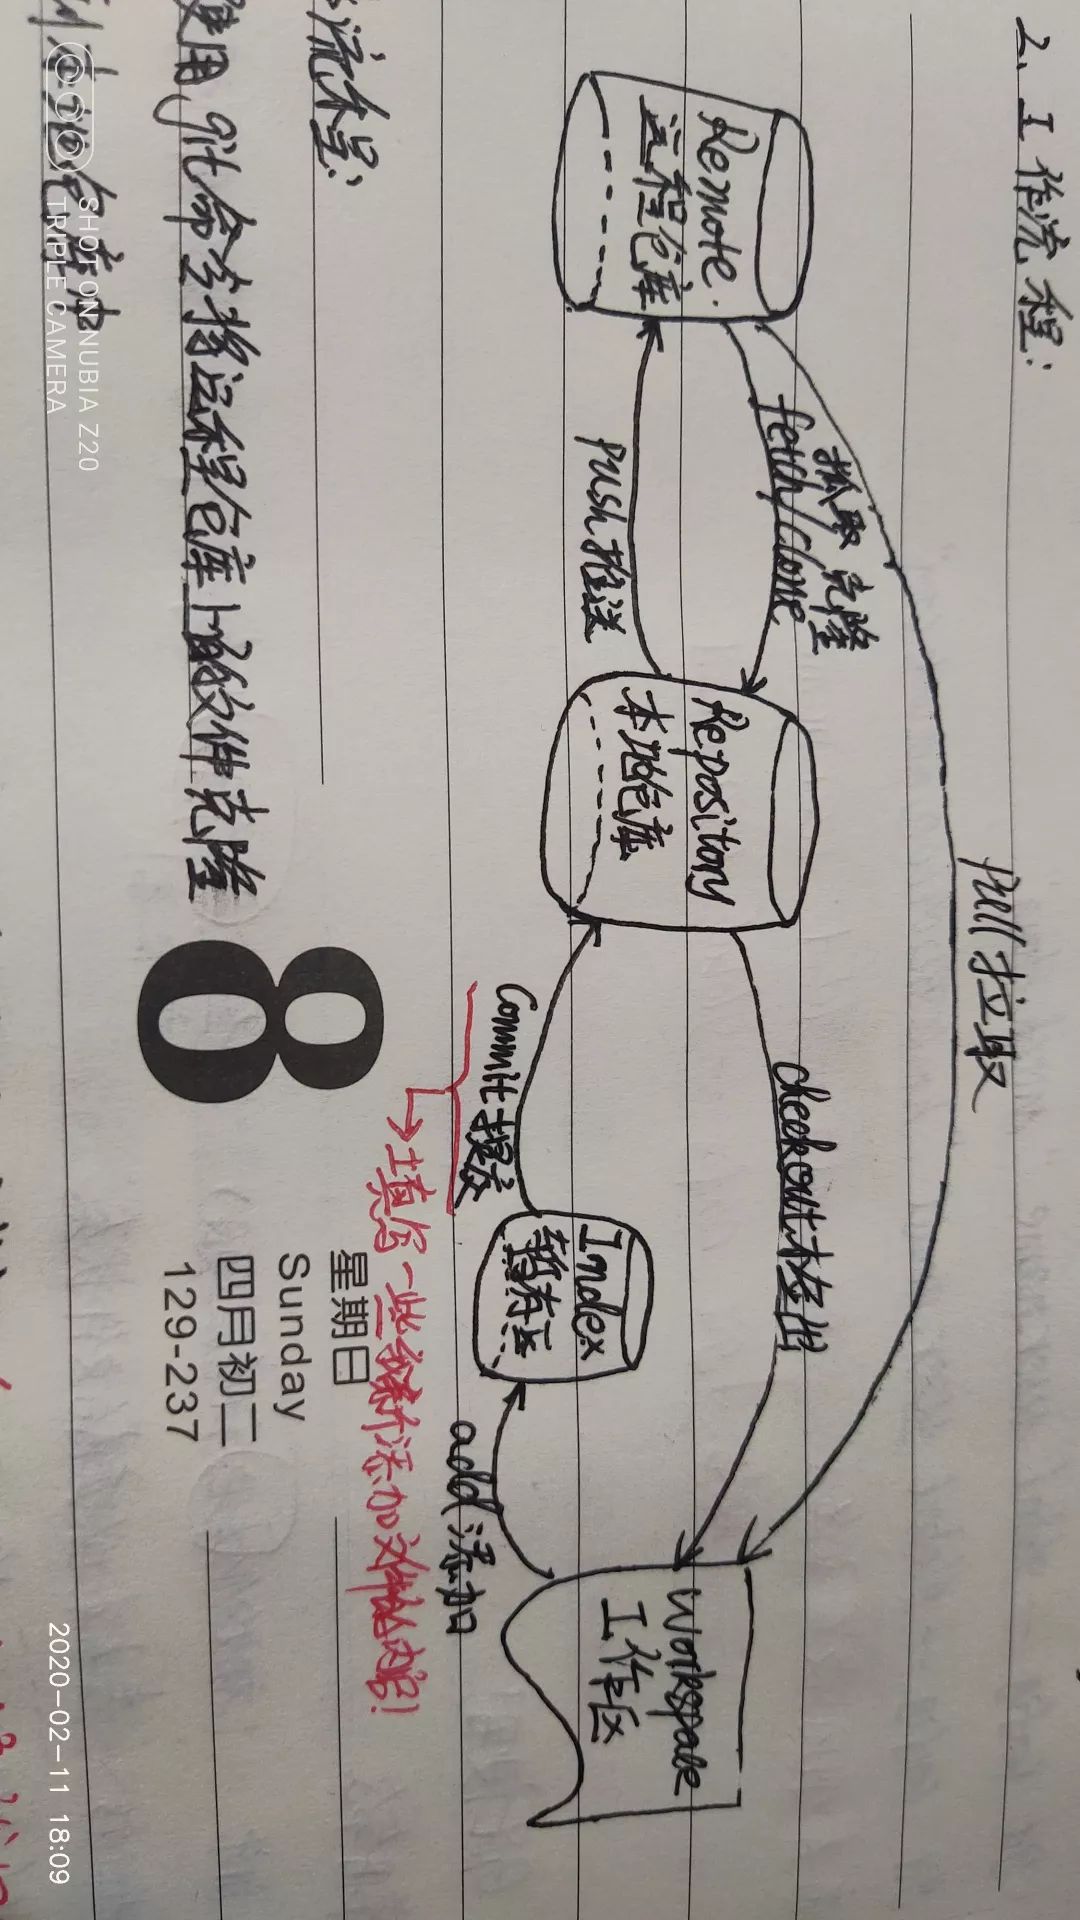 2、工作流程：
pull 拉取
抓取 克隆
fetch/clone
checkout 检出
Remote
远程仓库
Repository
本地仓库
Index
暂存区
Workspace
工作区
push 推送
commit 提交
add 添加
填写一些新添加文件的内容！
流程：
使用git命令将远程仓库上的文件克隆
8
星期日
Sunday
四月初二
129-237
SHOT ON NUBIA Z20
TRIPLE CAMERA
2020-02-11 18:09